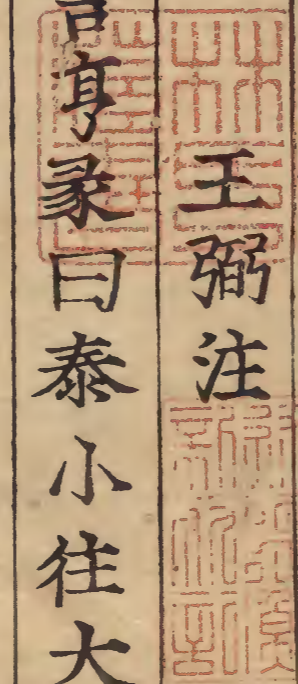 王弼注
吉亨彖曰泰小往大